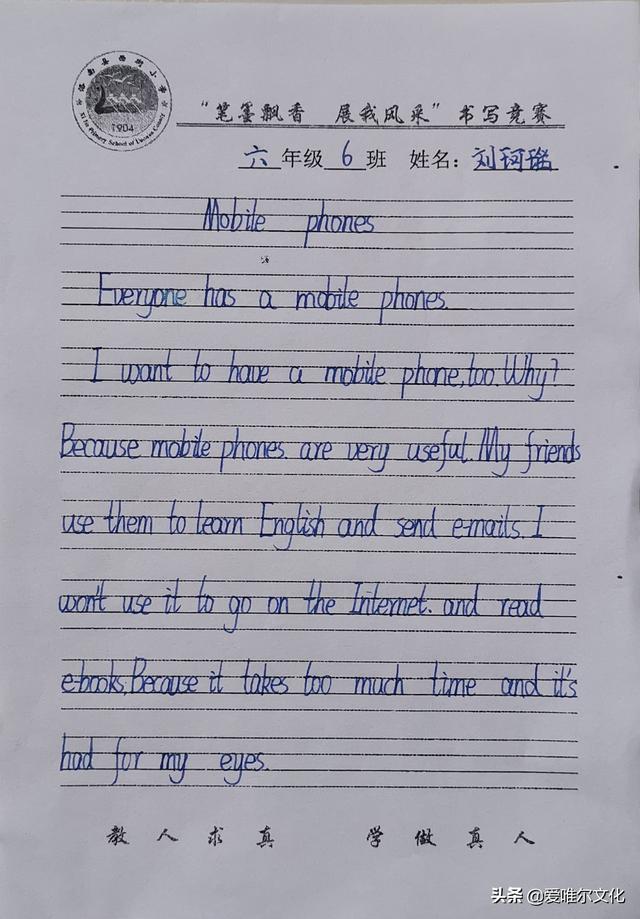 "笔墨飘香 展我风采"书写竞赛
1904
六年级6班 姓名:刘珂铭
Mobile phones
Everyone has a mobile phones.
I want to have a mobile phone, too. Why?
Because mobile phones. are very useful. My friends
use them to learn English and send e-mails. I
won't use it to go on the Internet. and read
e-books, Because it takes too much time and it's
had for my eyes.
教人求真 学做真人
头条 @爱唯尔文化